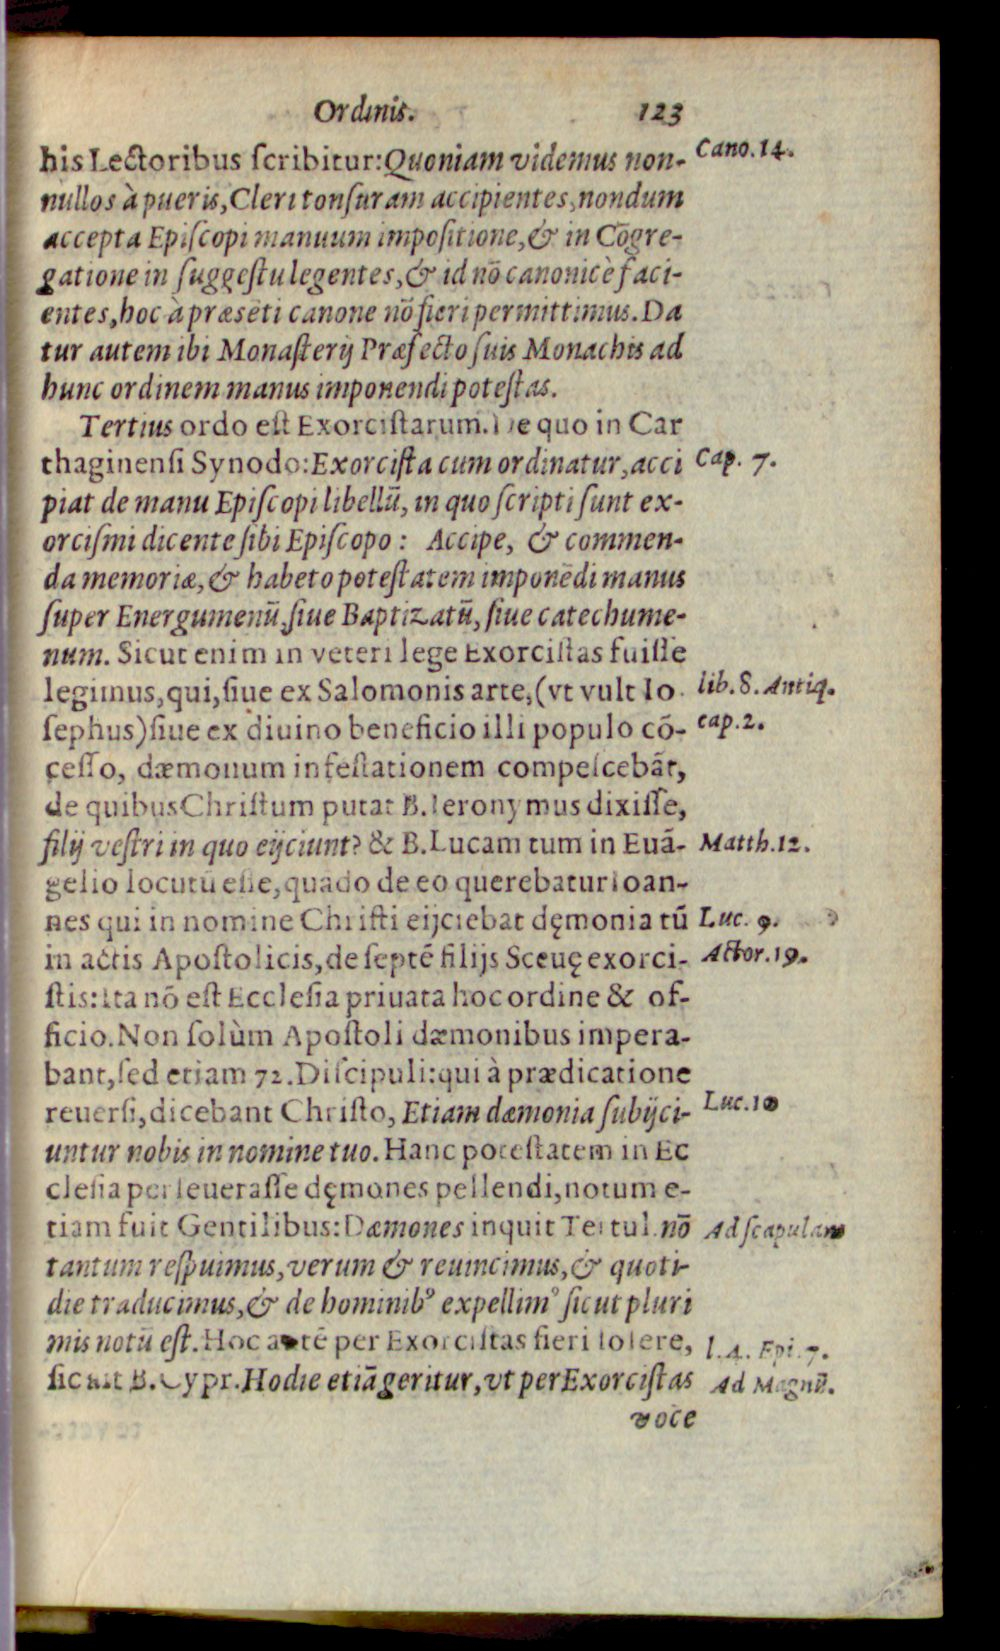 Ordinis. 123
his Lectoribus ſcribitur: Quoniam videmus non-
Cano.14.
nullos à pueris, Cleri tonſuram accipientes, nondum
accepta Epiſcopi manuum impoſitione, & in Cōgre-
gatione in ſuggeſtu legentes, & id nō canonicè faci-
entes, hoc à præsēti canone nō fieri permittimus. Da
tur autem ibi Monaſterij Præfecto ſuis Monachis ad
hunc ordinem manus imponendi poteſtas.
Tertius ordo eſt Exorciſtarum. De quo in Car
thaginenſi Synodo: Exorciſta cum ordinatur, acci
Cap. 7.
piat de manu Epiſcopi libellū, in quo ſcripti ſunt ex-
orciſmi dicente ſibi Epiſcopo: Accipe, & commen-
da memoriæ, & habeto poteſtatem imponēdi manus
ſuper Energumenū, ſiue Baptizatū, ſiue catechume-
num. Sicut enim in veteri lege Exorciſtas fuiſſe
legimus, qui, ſiue ex Salomonis arte, (vt vult Io
lib.8. Antiq.
ſephus) ſiue ex diuino beneficio illi populo cō-
cap.2.
ceſſo, dæmonum infeſtationem compeſcebāt,
de quibus Chriſtum putat B. Ieronymus dixiſſe,
filij veſtri in quo eijciunt? & B. Lucam tum in Euā-
Matth.12.
gelio locutū eſſe, quādo de eo querebatur Ioan-
nes qui in nomine Chriſti eijciebat dęmonia tū
Luc. 9.
in actis Apoſtolicis, de ſeptē filijs Sceuę exorci-
Actor.19.
ſtis: Ita nō eſt Eccleſia priuata hoc ordine & of-
ficio. Non ſolùm Apoſtoli dæmonibus impera-
bant, ſed etiam 72. Diſcipuli: qui à prædicatione
reuerſi, dicebant Chriſto, Etiam dæmonia ſubijci-
Luc.10
untur nobis in nomine tuo. Hanc poteſtatem in Ec
cleſia perſeueraſſe dęmones pellendi, notum e-
tiam fuit Gentilibus: Dæmones inquit Tertul. nō
Ad ſcapulam
tantum reſpuimus, verum & reuincimus, & quoti-
die traducimus, & de hominibꝰ expellimꝰ ſicut pluri
mis notū eſt. Hoc autē per Exorciſtas fieri ſolere,
l.4. Epi.7.
ſic ait B. Cypr. Hodie etiā geritur, vt per Exorciſtas
Ad Magnū.
voce